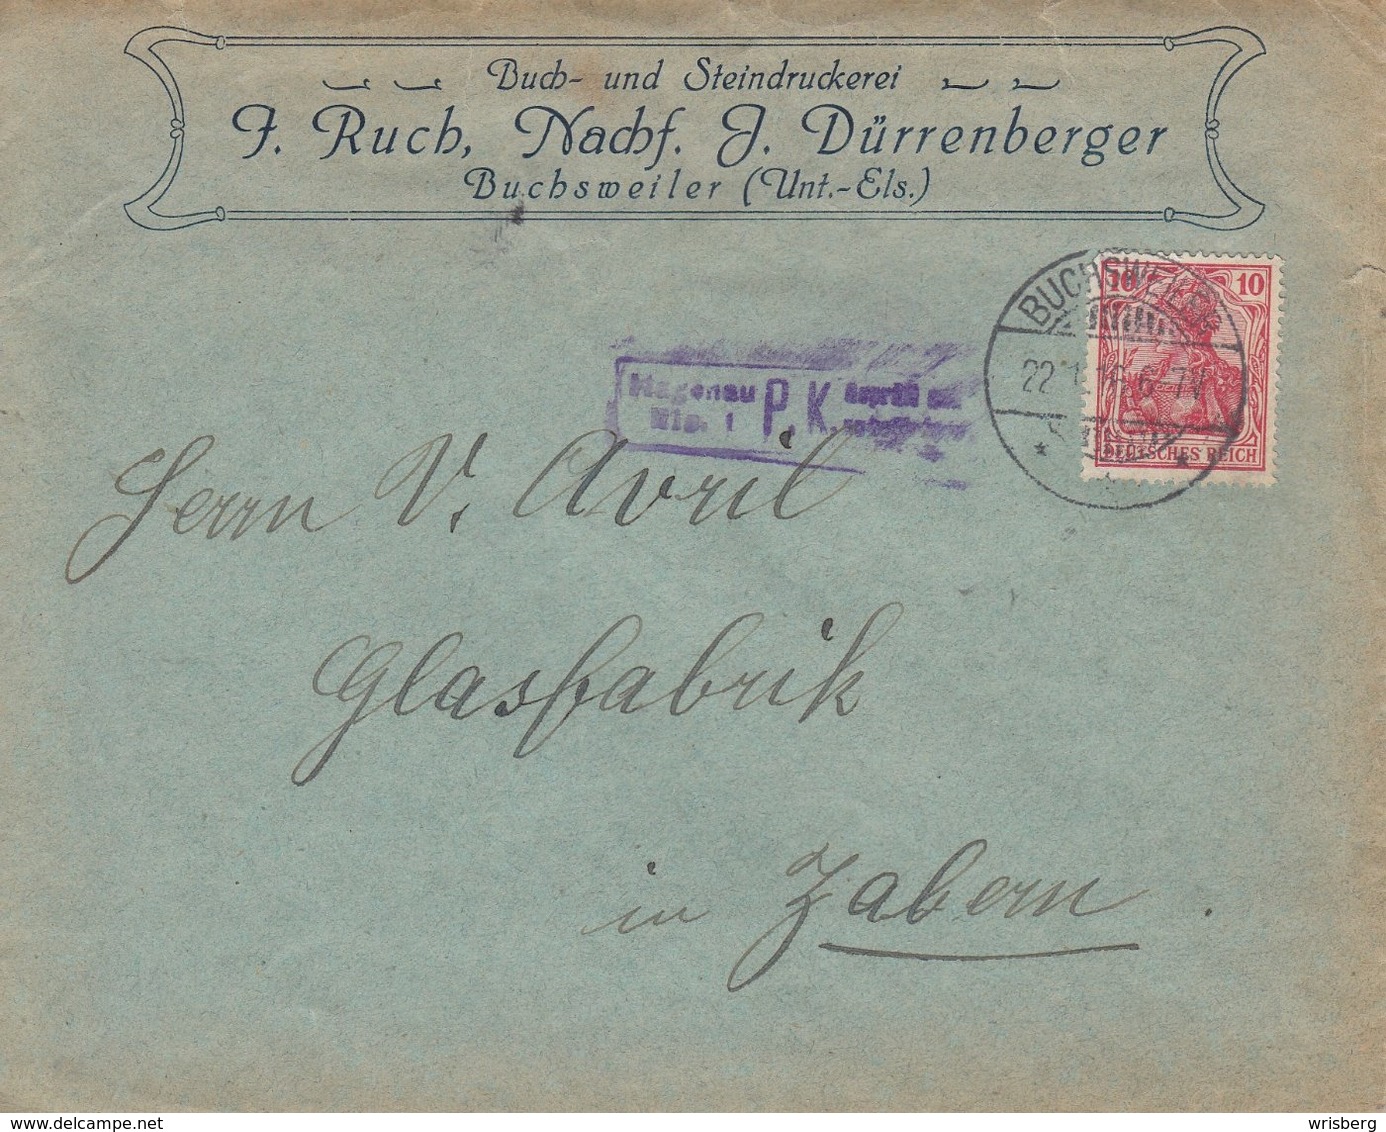 Buch- und Steindruckerei
F. Ruch, Nachf. J. Dürrenberger
Buchsweiler (Unt.-Els.)
BUCHSWEILER
10 10
22
DEUTSCHES REICH
Hagenau P.K. Geprüft und
Els. 1
Herrn V. Avril
Glasfabrik
in Zabern.
www.delcampe.net
wrisberg